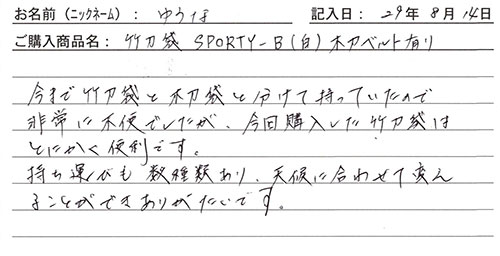 お名前（ニックネーム）： ゆうな 記入日： 29年 8月 14日
ご購入商品名： 竹刀袋 SPORTY-B（白）木刀ベルト有り
今まで竹刀袋と木刀袋と分けて持っていたので
非常に不便でしたが、今回購入した竹刀袋は
とにかく便利です。
持ち運びも数種類あり、天候に合わせて変え
ることができありがたいです。